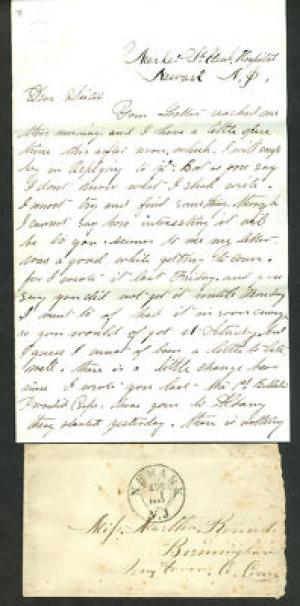 Market St Genl, Hospital
Newark N. J.,
Dear Sister
Your Letter reached me
this morning and I have a little spare
time this after noon, which, I will employ
in Replying to it. But as you say
I dont know what I shall write.
I must try and find something though
I cannot say how interesting it will
be to you. seems to me my letter
was a good while getting to
for I wrote it last Friday, and you
say you did not get it until Monday
I went to of had it in
so you would of got it Saturday, but
I guess I must of been a little to late,
well. there is a little change here
since I wrote you last - the 1st Battalion
Invalid Corps. have gone to Albany
they started yesterday. there is nothing
NEWARK
N.J
Miss Martha
Birmingham
New Haven Co Conn